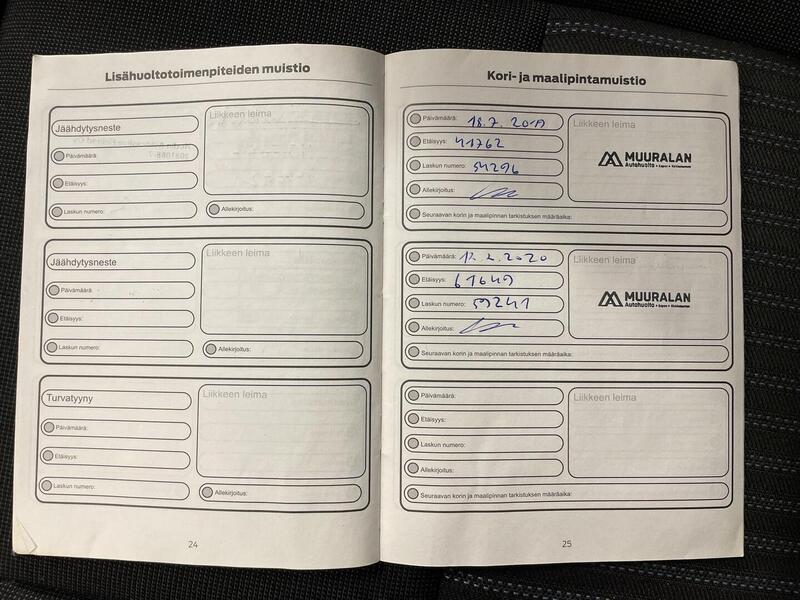 Lisähuoltotoimenpiteiden muistio
Jäähdytysneste
Liikkeen leima
Päivämäärä:
Etäisyys:
Laskun numero:
Allekirjoitus:
Jäähdytysneste
Liikkeen leima
Päivämäärä:
Etäisyys:
Laskun numero:
Allekirjoitus:
Turvatyyny
Liikkeen leima
Päivämäärä:
Etäisyys:
Laskun numero:
Allekirjoitus:
24
Kori- ja maalipintamuistio
Päivämäärä: 18.7.2019
Liikkeen leima
Etäisyys: 41762
MUURALAN
Autohuolto
Laskun numero: 54296
Allekirjoitus:
Seuraavan korin ja maalipinnan tarkistuksen määräaika:
Päivämäärä: 2020
Liikkeen leima
Etäisyys: 61649
MUURALAN
Autohuolto
Laskun numero: 59241
Allekirjoitus:
Seuraavan korin ja maalipinnan tarkistuksen määräaika:
Päivämäärä:
Liikkeen leima
Etäisyys:
Laskun numero:
Allekirjoitus:
Seuraavan korin ja maalipinnan tarkistuksen määräaika:
25